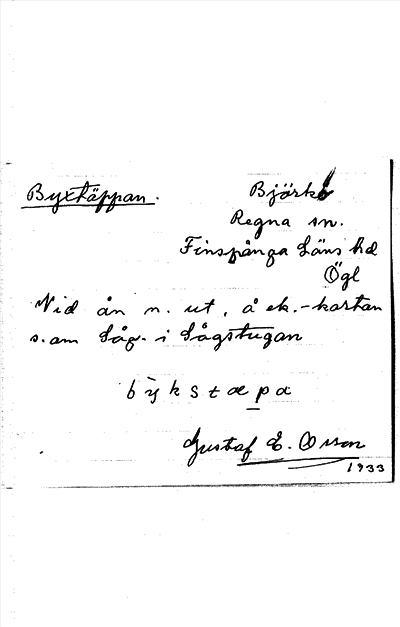 Byxtäppan.
Björkö
Regna sn.
Finspånga Läns hd
Ögl
Vid ån n. ut, å ek.-kartan
s. om Såg- i Sågstugan
b y̆ k s t æ p a
Gustaf E. Olsson
1933